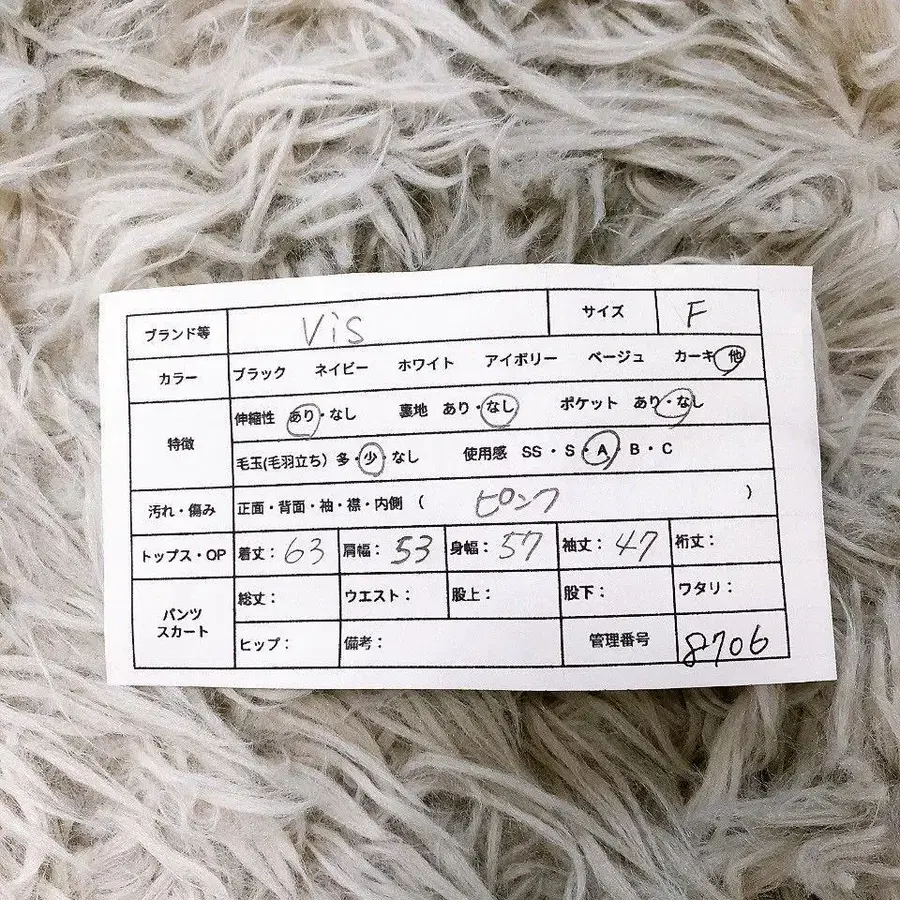 ブランド等 ViS サイズ F
カラー ブラック ネイビー ホワイト アイボリー ベージュ カーキ 他
特徴
伸縮性 あり・なし 裏地 あり・なし ポケット あり・なし
毛玉(毛羽立ち) 多・少・なし 使用感 SS・S・A・B・C
汚れ・傷み 正面・背面・袖・襟・内側 ( ピンク )
トップス・OP 着丈: 63 肩幅: 53 身幅: 57 袖丈: 47 裄丈:
パンツ
スカート
総丈: ウエスト: 股上: 股下: ワタリ:
ヒップ: 備考: 管理番号 8706